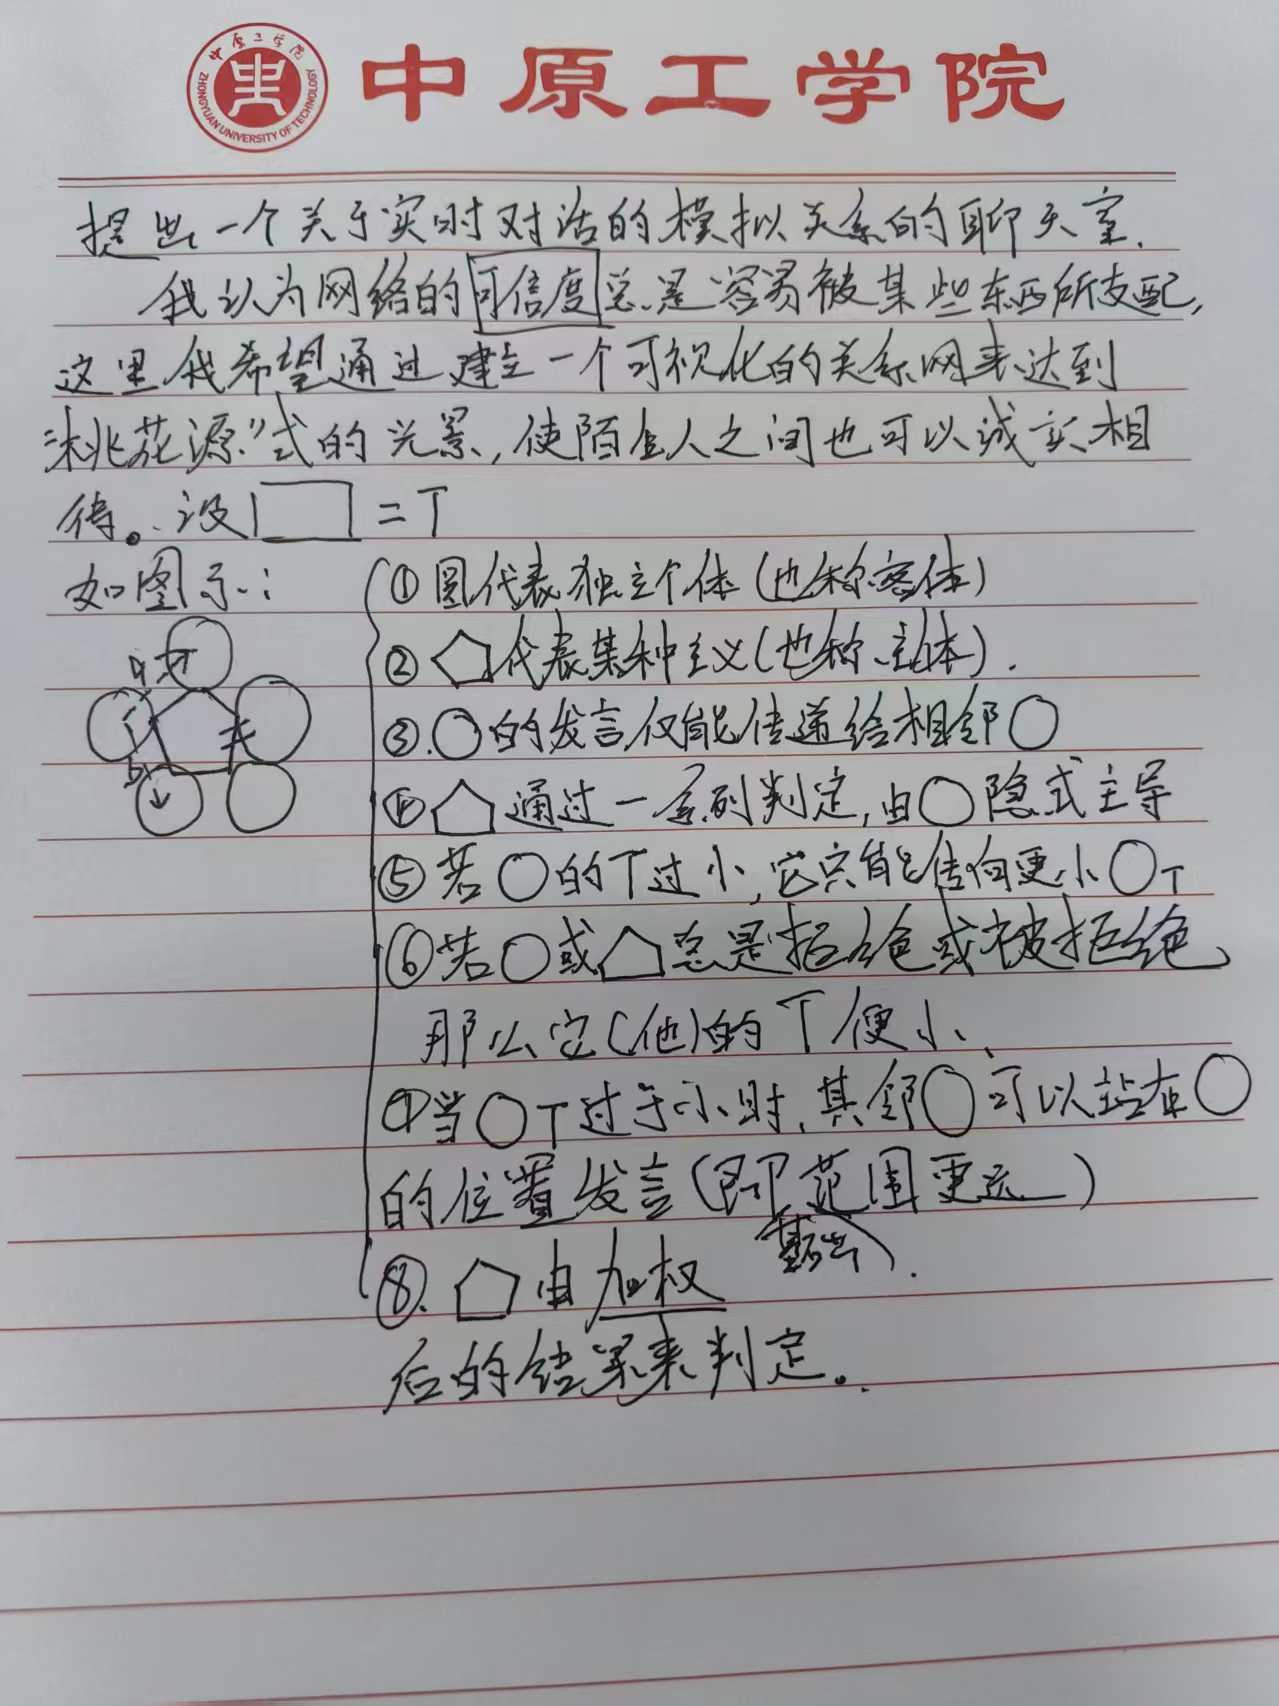 中原工学院
ZHONGYUAN UNIVERSITY OF TECHNOLOGY
中原工学院
提出一个关于实时对话的模拟关系的聊天室.
我认为网络的可信度总是容易被某些东西所支配,
这里我希望通过建立一个可视化的关系网来达到
“桃花源”式的光景,使陌生人之间也可以诚实相
待。设□=T
如图示:
a T
b
①圆代表独立个体(也称客体)
②⬠代表某种主义(也称主体).
③.○的发言仅能传递给相邻○
④⬠通过一系列判定,由○隐式主导
⑤若○的T过小,它只能传向更小○T
⑥若○或⬠总是拒绝或被拒绝,
那么它(他)的T便小、
⑦当○T过于小时,其邻○可以站在○
的位置发言(即范围更远)
⑧.⬠由加权
后的结果来判定。